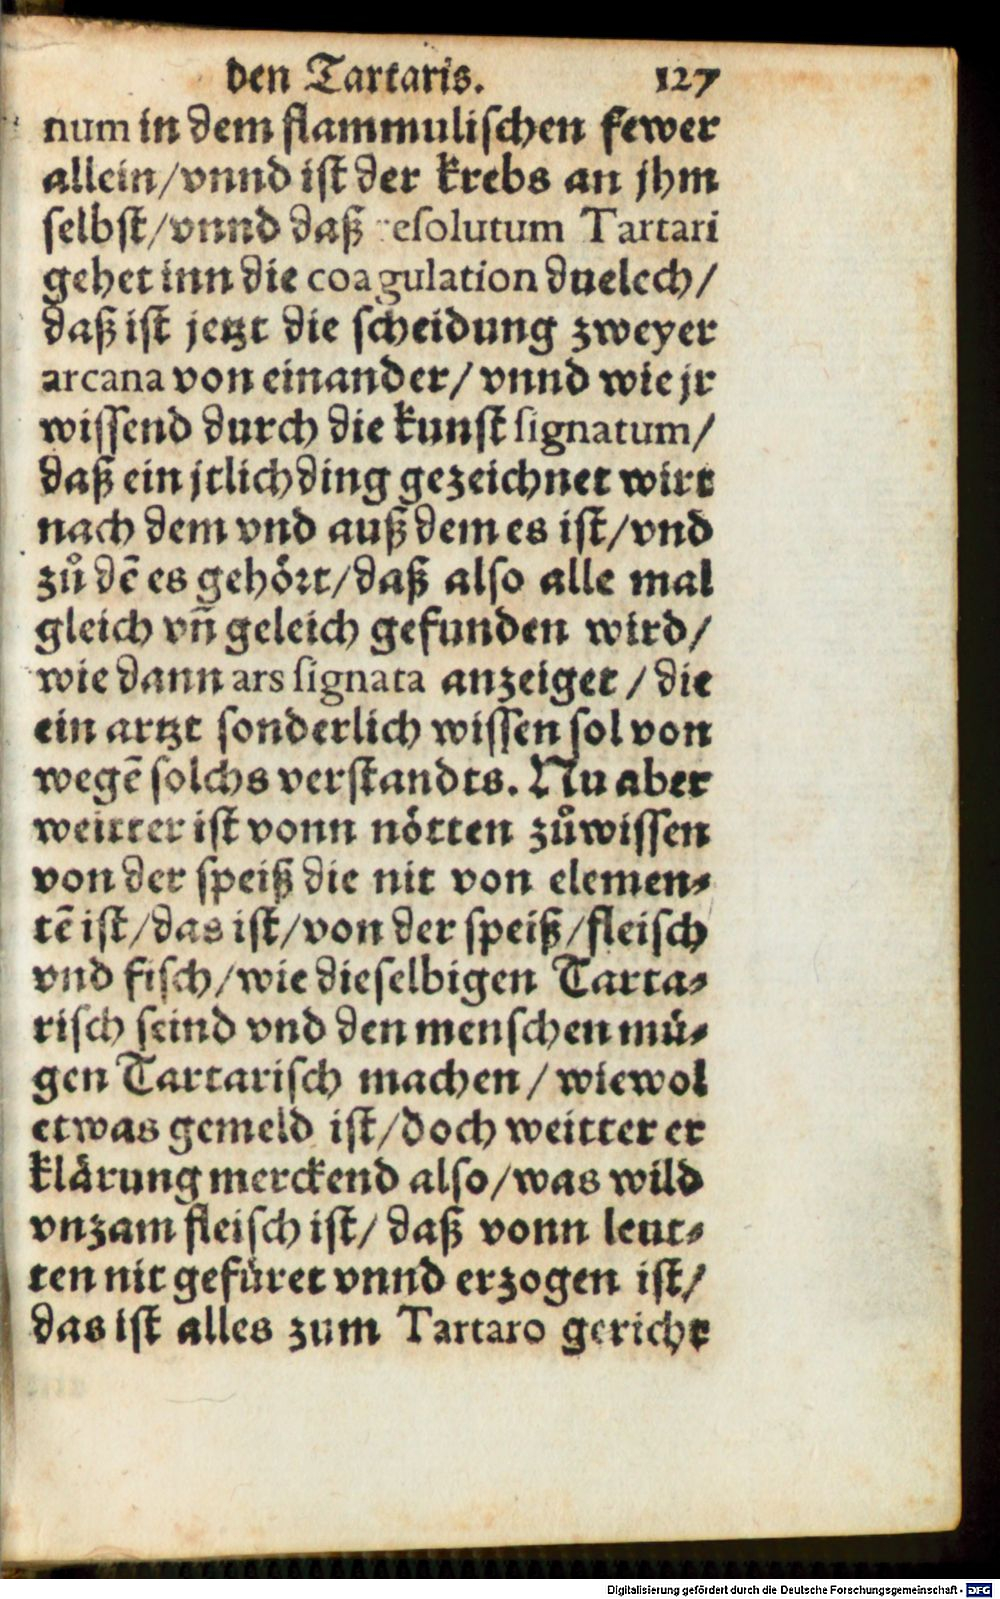 den Tartaris. 127
num in dem flammulischen fewer
allein/vnnd ist der krebs an jhm
selbst/vnnd daß resolutum Tartari
gehet inn die coagulation duelech/
daß ist jetzt die scheidung zweyer
arcana von einander/vnnd wie jr
wissend durch die kunst signatum/
daß ein jtlich ding gezeichnet wirt
nach dem vnd auß dem es ist/vnd
zů dē es gehört/daß also alle mal
gleich vñ geleich gefunden wird/
wie dann ars signata anzeiget/die
ein artzt sonderlich wissen sol von
wegē solchs verstandts. Nu aber
weitter ist vonn nötten zůwissen
von der speiß die nit von elemen-
tē ist/das ist/von der speiß/fleisch
vnd fisch/wie dieselbigen Tarta-
risch seind vnd den menschen mü-
gen Tartarisch machen/wiewol
etwas gemeld ist/doch weitter er
klärung merckend also/was wild
vnzam fleisch ist/daß vonn leut-
ten nit gefüret vnnd erzogen ist/
das ist alles zum Tartaro gericht
Digitalisierung gefördert durch die Deutsche Forschungsgemeinschaft - DFG